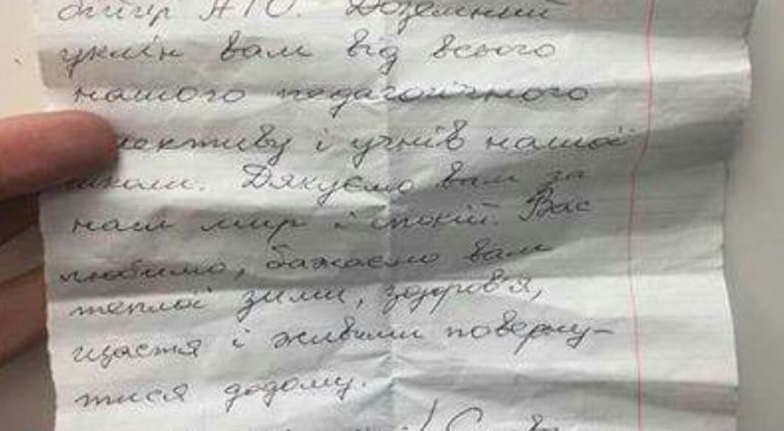 АТО. Доземний
уклін вам від всього
нашого педагогічного
лективу і учнів нашої
школи. Дякуємо вам за
наш мир і спокій. Вас
любимо, бажаємо вам
теплої зими, здоров'я,
щастя і живими поверну-
тися додому.